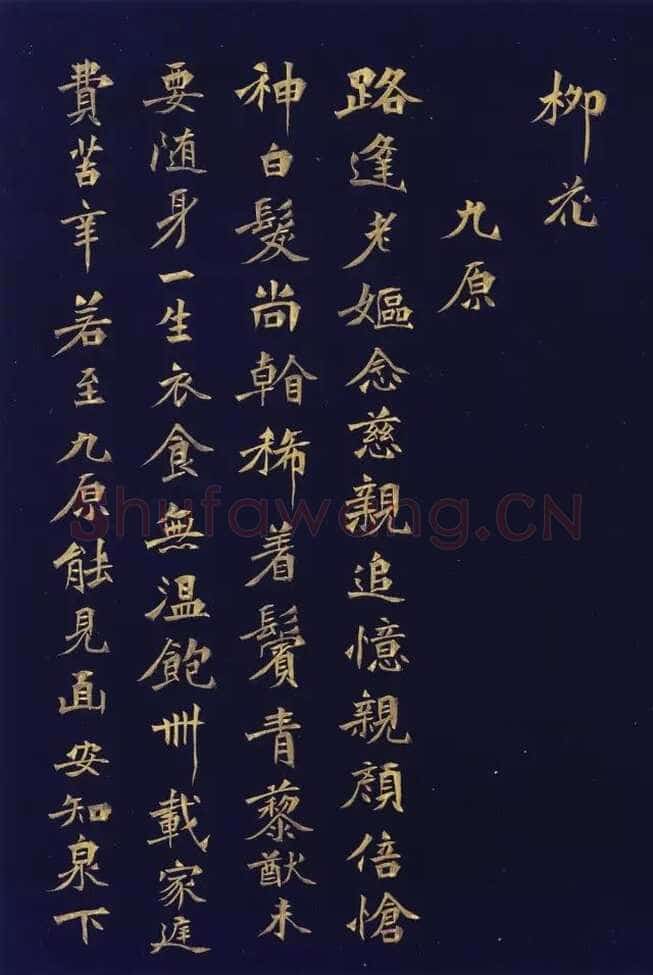 柳花
九原
路逢老嫗念慈親追憶親顏倍愴
神白髮尚稀着鬢青藜猷未
要随身一生衣食無温飽卌載家庭
費苦辛若至九原能見面安知泉下
Shufawang.CN